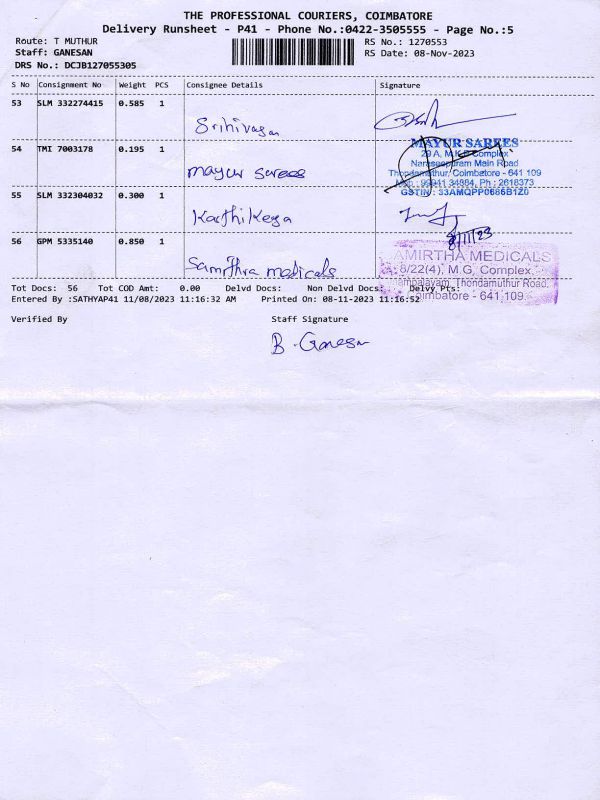 THE PROFESSIONAL COURIERS, COIMBATORE
Delivery Runsheet - P41 - Phone No.:0422-3505555 - Page No.:5
Route: T MUTHUR
RS No.: 1270553
Staff: GANESAN
RS Date: 08-Nov-2023
DRS No.: DCJB127055305
S No Consignment No Weight PCS Consignee Details Signature
53 SLM 332274415 0.585 1
Srinivasan
54 TMI 7003178 0.195 1
mayur sarees
MAYUR SAREES
29 A, M.K.P. Complex
Naraseepuram Main Road
Thondamuthur, Coimbatore - 641 109
GSTIN : 33AMQPP0686B1Z0
55 SLM 332304032 0.300 1
Karthikeya
8/11/23
56 GPM 5335140 0.850 1
Samrthra medicals
AMIRTHA MEDICALS
8/22(4), M.G. Complex,
Thondamuthur Road,
Coimbatore - 641 109.
Tot Docs: 56 Tot COD Amt: 0.00 Delvd Docs: Non Delvd Docs: Delvy Pts:
Entered By :SATHYAP41 11/08/2023 11:16:32 AM Printed On: 08-11-2023 11:16:52
Verified By Staff Signature
B. Ganesan